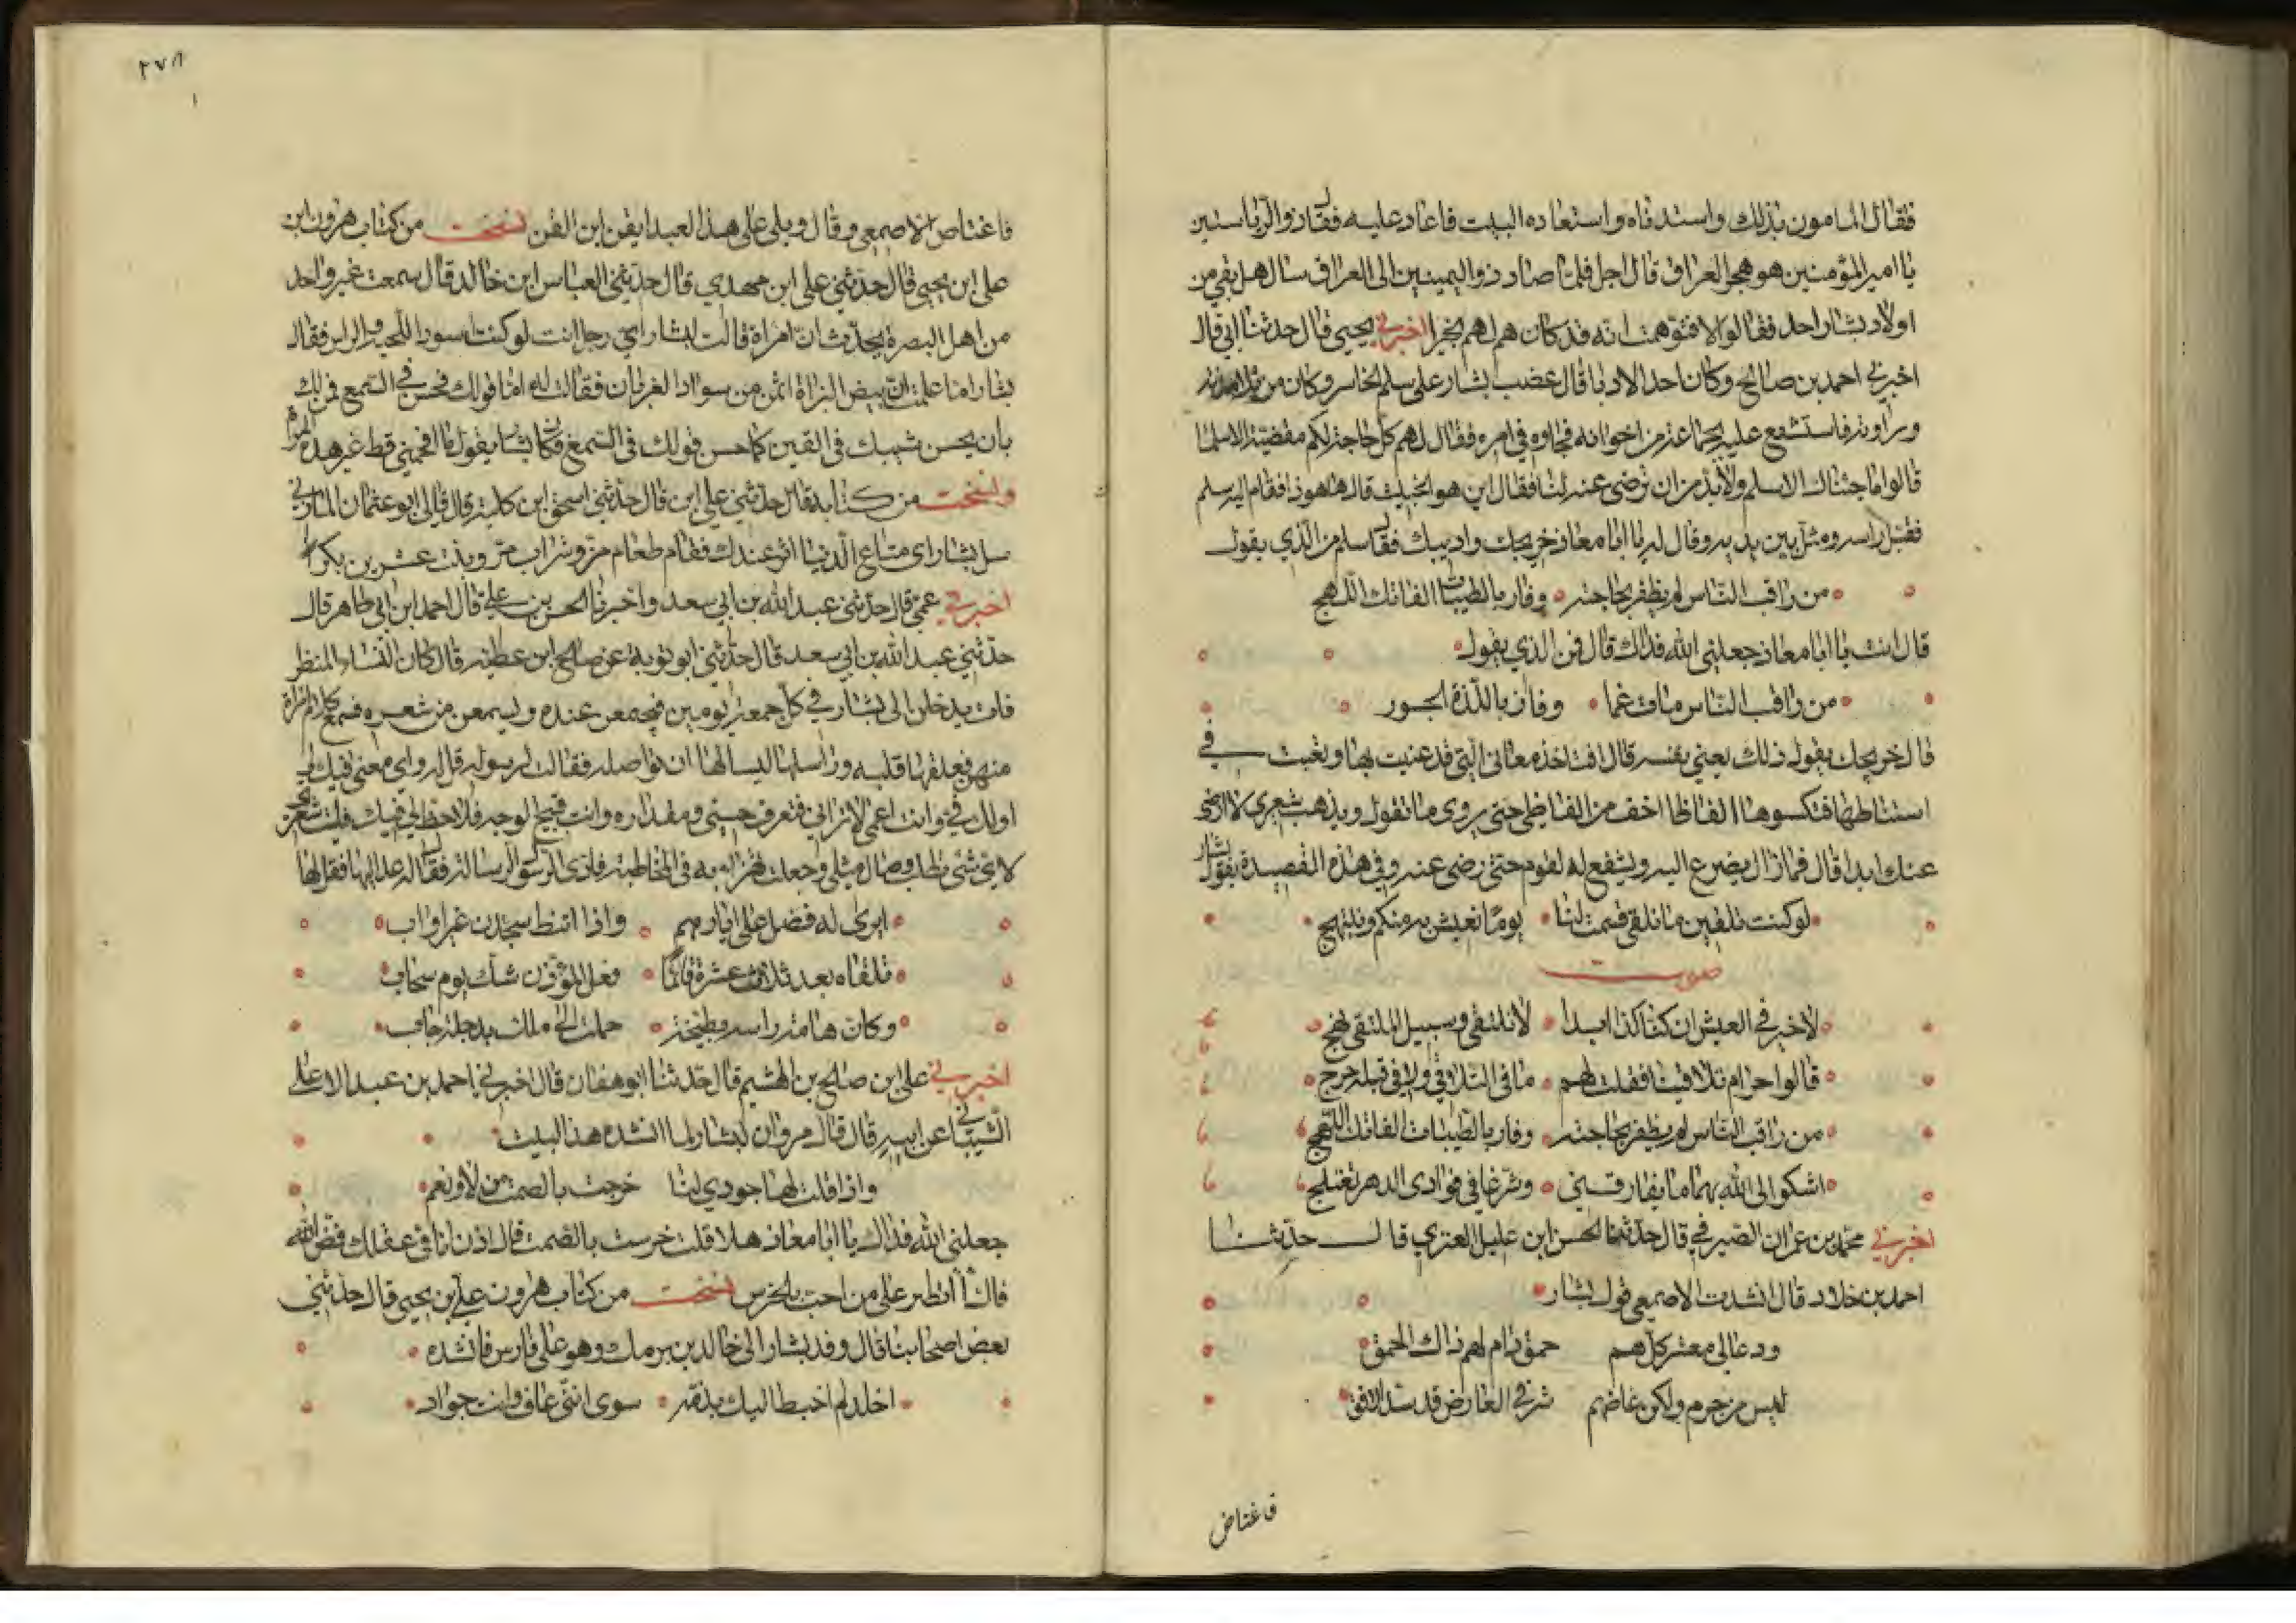 فقال المامون بذلك واستدناه واستعاده البيت فاعاد عليه فقال ذوالرياستين
يا امير المؤمنين هو هجو العراق قال اجل فلما صار ذواليمينين الى العراق سال هل بقي من
اولاد بشار احد فقالوا لا فتوهمت انه قد كان هم لهم بخير اخبرني يحيى قال حدثنا ابي قال
اخبرني احمد بن صالح وكان احد الادبا قال غضب بشار على سلم الخاسر وكان من تلامذته
ورواته فاستشفع عليه بجماعة من اخوانه فجاوه في امره فقال لهم كل حاجة لكم مقضية الا سلما
قالوا ما جئناك الا سلم ولا بد من ان ترضى عنه لنا فقال اين هو الخبيث قالوا ها هوذا فقام اليه سلم
فقبل راسه ومثل بين يديه وقال له يا ابا معاذ خريجك واديبك فقال يا سلم من الذي يقول
من راقب الناس لم يظفر بحاجته وفاز بالطيبات الفاتك اللهج
قال انت يا ابا معاذ جعلني الله فداك قال فمن الذي يقول
من راقب الناس مات غما وفاز باللذة الجسور
قال خريجك يقول ذلك يعني نفسه قال افتاخذ معاني التي قد عنيت بها وتعبت في
استنباطها فتكسوها الفاظا اخف من الفاظي حتى يروى ما تقول ويذهب شعري لا ارضى
عنك ابدا قال فما زال يضرع اليه ويشفع له القوم حتى رضي عنه وفي هذه القصيدة يقول بشار
لو كنت تلقين ما نلقى قسمت لنا يوما نعيش به منكم ونبتهج
صوت
لا خير في العيش ان كنا كذا ابدا لا نلتقي وسبيل الملتقى نهج
قالوا حرام تلاقينا فقلت لهم ما في التلاقي ولا في قبلة حرج
من راقب الناس لم يظفر بحاجته وفاز بالطيبات الفاتك اللهج
اشكو الى الله هما ما يفارقني وشرعا في فوادى الدهر تعتلج
اخبرني محمد بن عمران الصيرفي قال حدثنا الحسن ابن عليل العنزي قال حدثنا
احمد بن خلاد قال انشدت الاصمعي قول بشار
ودعاني معشر كلهم حمق دام لهم ذاك الحمق
ليس من جرم ولكن غاضهم شرفي العارض قد سد الافق
فاغتاض
٢٧٨
فاغتاض الاصمعي وقال ويلي على هذا العبد القن ابن القن نسخت من كتاب هرون ابن
على ابن يحيى قال حدثني على ابن مهدي قال حدثني العباس ابن خالد قال سمعت غير واحد
من اهل البصرة يحدث ان امراة قالت لبشار اي رجل انت لو كنت اسود اللحية والراس فقال
بشار اما علمت ان بيض البزاة اثمن من سواد الغربان فقالت له اما قولك فحسن في السمع فمن لك
بان يحسن شيبك في العين كما حسن قولك في السمع فكان بشار يقول ما افحمني قط غير هذه المراة
ونسخت من كتابه قال حدثني علي ابن قال حدثني اسحق ابن كلبة قال قال لي ابو عثمان المازني
سل بشار اي متاع الدنيا اثر عندك فقام طعام مز وشراب مر وبنت عشرين بكرا
اخبرني عمي قال حدثني عبد الله بن ابي سعد واخبرنا الحسن بن علي قال احمد ابن ابي طاهر قال
حدثني عبد الله بن ابي سعد قال حدثني ابو توبة عن صالح ابن عطية قال كان النساء المتظر
فات يدخلن الى بشار في كل جمعة يومين فيجمعن عنده ويسمعن من شعره فسمع كلام امراة
منهن فعلقها قلبه وراسلها ليسالها ان تواصله فقالت لرسوله قل له واي معنى فيك لي
اولك في وانت اعمى لا تراني فتعرف حسني ومقداره وانت قبيح الوجه فلا حظ لي فيك فليت شعري
لاي شئ تطلب وصال مثلي وجعلت تهزا به في المخاطبة فادى الرسول الرسالة فقال له عد اليها فقل لها
ايرى له فضل على ايارهم واذا اتنط سجدن غير اواب
تلقاه بعد ثلاث عشرة قائما فعل المؤذن شك يوم سحاب
وكان هامة راسه بطيخة حملت الى ملك بدجلة جاب
اخبرني على ابن صالح بن الهشيم قال حدثنا ابو هفان قال اخبرني احمد بن عبد الاعلى
الشيباني عن ابيه قال قال مروان لبشار لما انشده هذا البيت
واذا قلت لها جودي لنا خرجت بالصمت من لا ونعم
جعلني الله فداك يا ابا معاذ هلا قلت خرست بالصمت قال اذن انا في عقلك فض الله
فاك أأتطير على من احب بالخرس نسخت من كتاب هرون علي بن يحيى قال حدثني
بعض اصحابنا قال وفد بشار الى خالد بن برمك وهو على فارس فانشده
اخالد لم اخبط اليك بذمة سوى انني عاف وانت جواد